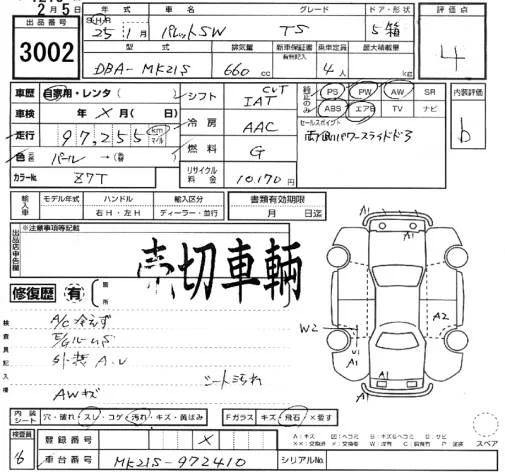 2月5日
出品番号
3002
年式 車名 グレード ドア・形状 評価点
25年 1月 パレットSW TS 5 箱 4
型式 排気量 新車保証書 有無記入 乗車定員 最大積載量
DBA-MK21S 660 cc 4 人 kg
車歴 自家用・レンタ( ) シフト CVT IAT 純正のみ PS PW AW SR 内装評価
車検 年 X 月( 日) 冷房 AAC ABS エアB TV ナビ b
走行 97,255 km マイル 燃料 G セールスポイント
両側パワースライドドア
色 パール リサイクル料金 10.170円
カラーNo. Z7T
輸入車 モデル年式 ハンドル 輸入区分 書類有効期限
右H・左H ディーラー・並行 月 日迄
出品店申告欄 ※注意事項等記載
売切車輌
修復歴 有 箇所
検査員記入欄
A/C冷えず
外装 A.U
シート汚れ
AWキズ
A1
A1
W2
A2
U1
A1
A1
内装シート 穴・破れ・スレ・コゲ・汚れ・キズ・黄ばみ Fガラス キズ・飛石・X要す
スペア
検査員 登録番号 X
16 車台番号 MK21S-972410 シリアルNo.